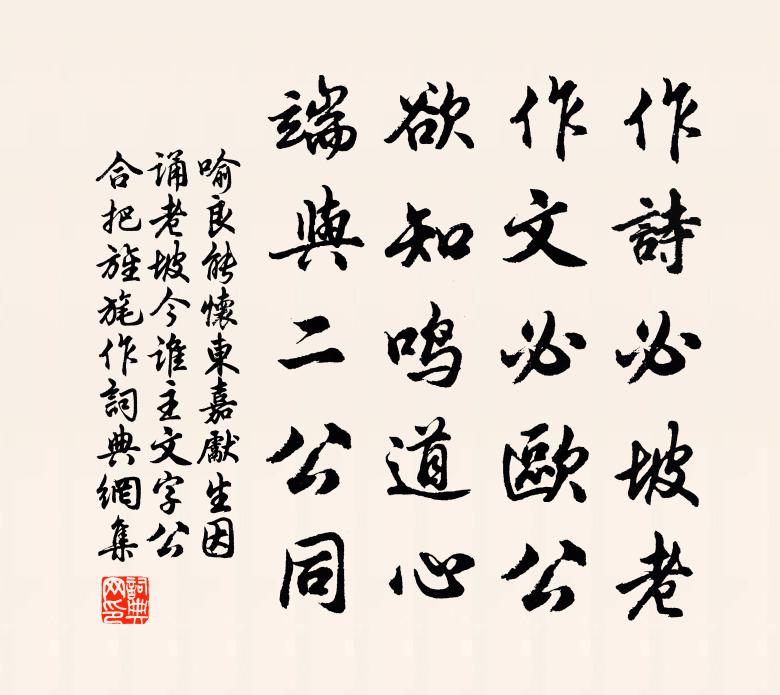 作詩必坡老
作文必歐公
欲知鳴道心
端與二公同
喻良能懷東嘉獻生因
誦老坡今誰主文字公
合把旌旄作詞典網集
詞典网印